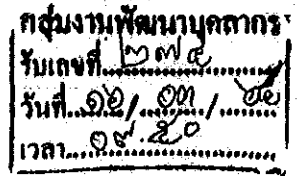 กลุ่มงานพัฒนาบุคลากร
รับเลขที่ ๒๗๔
วันที่ ๑๖ / ๐๓ /
เวลา ๐๙.๕๐